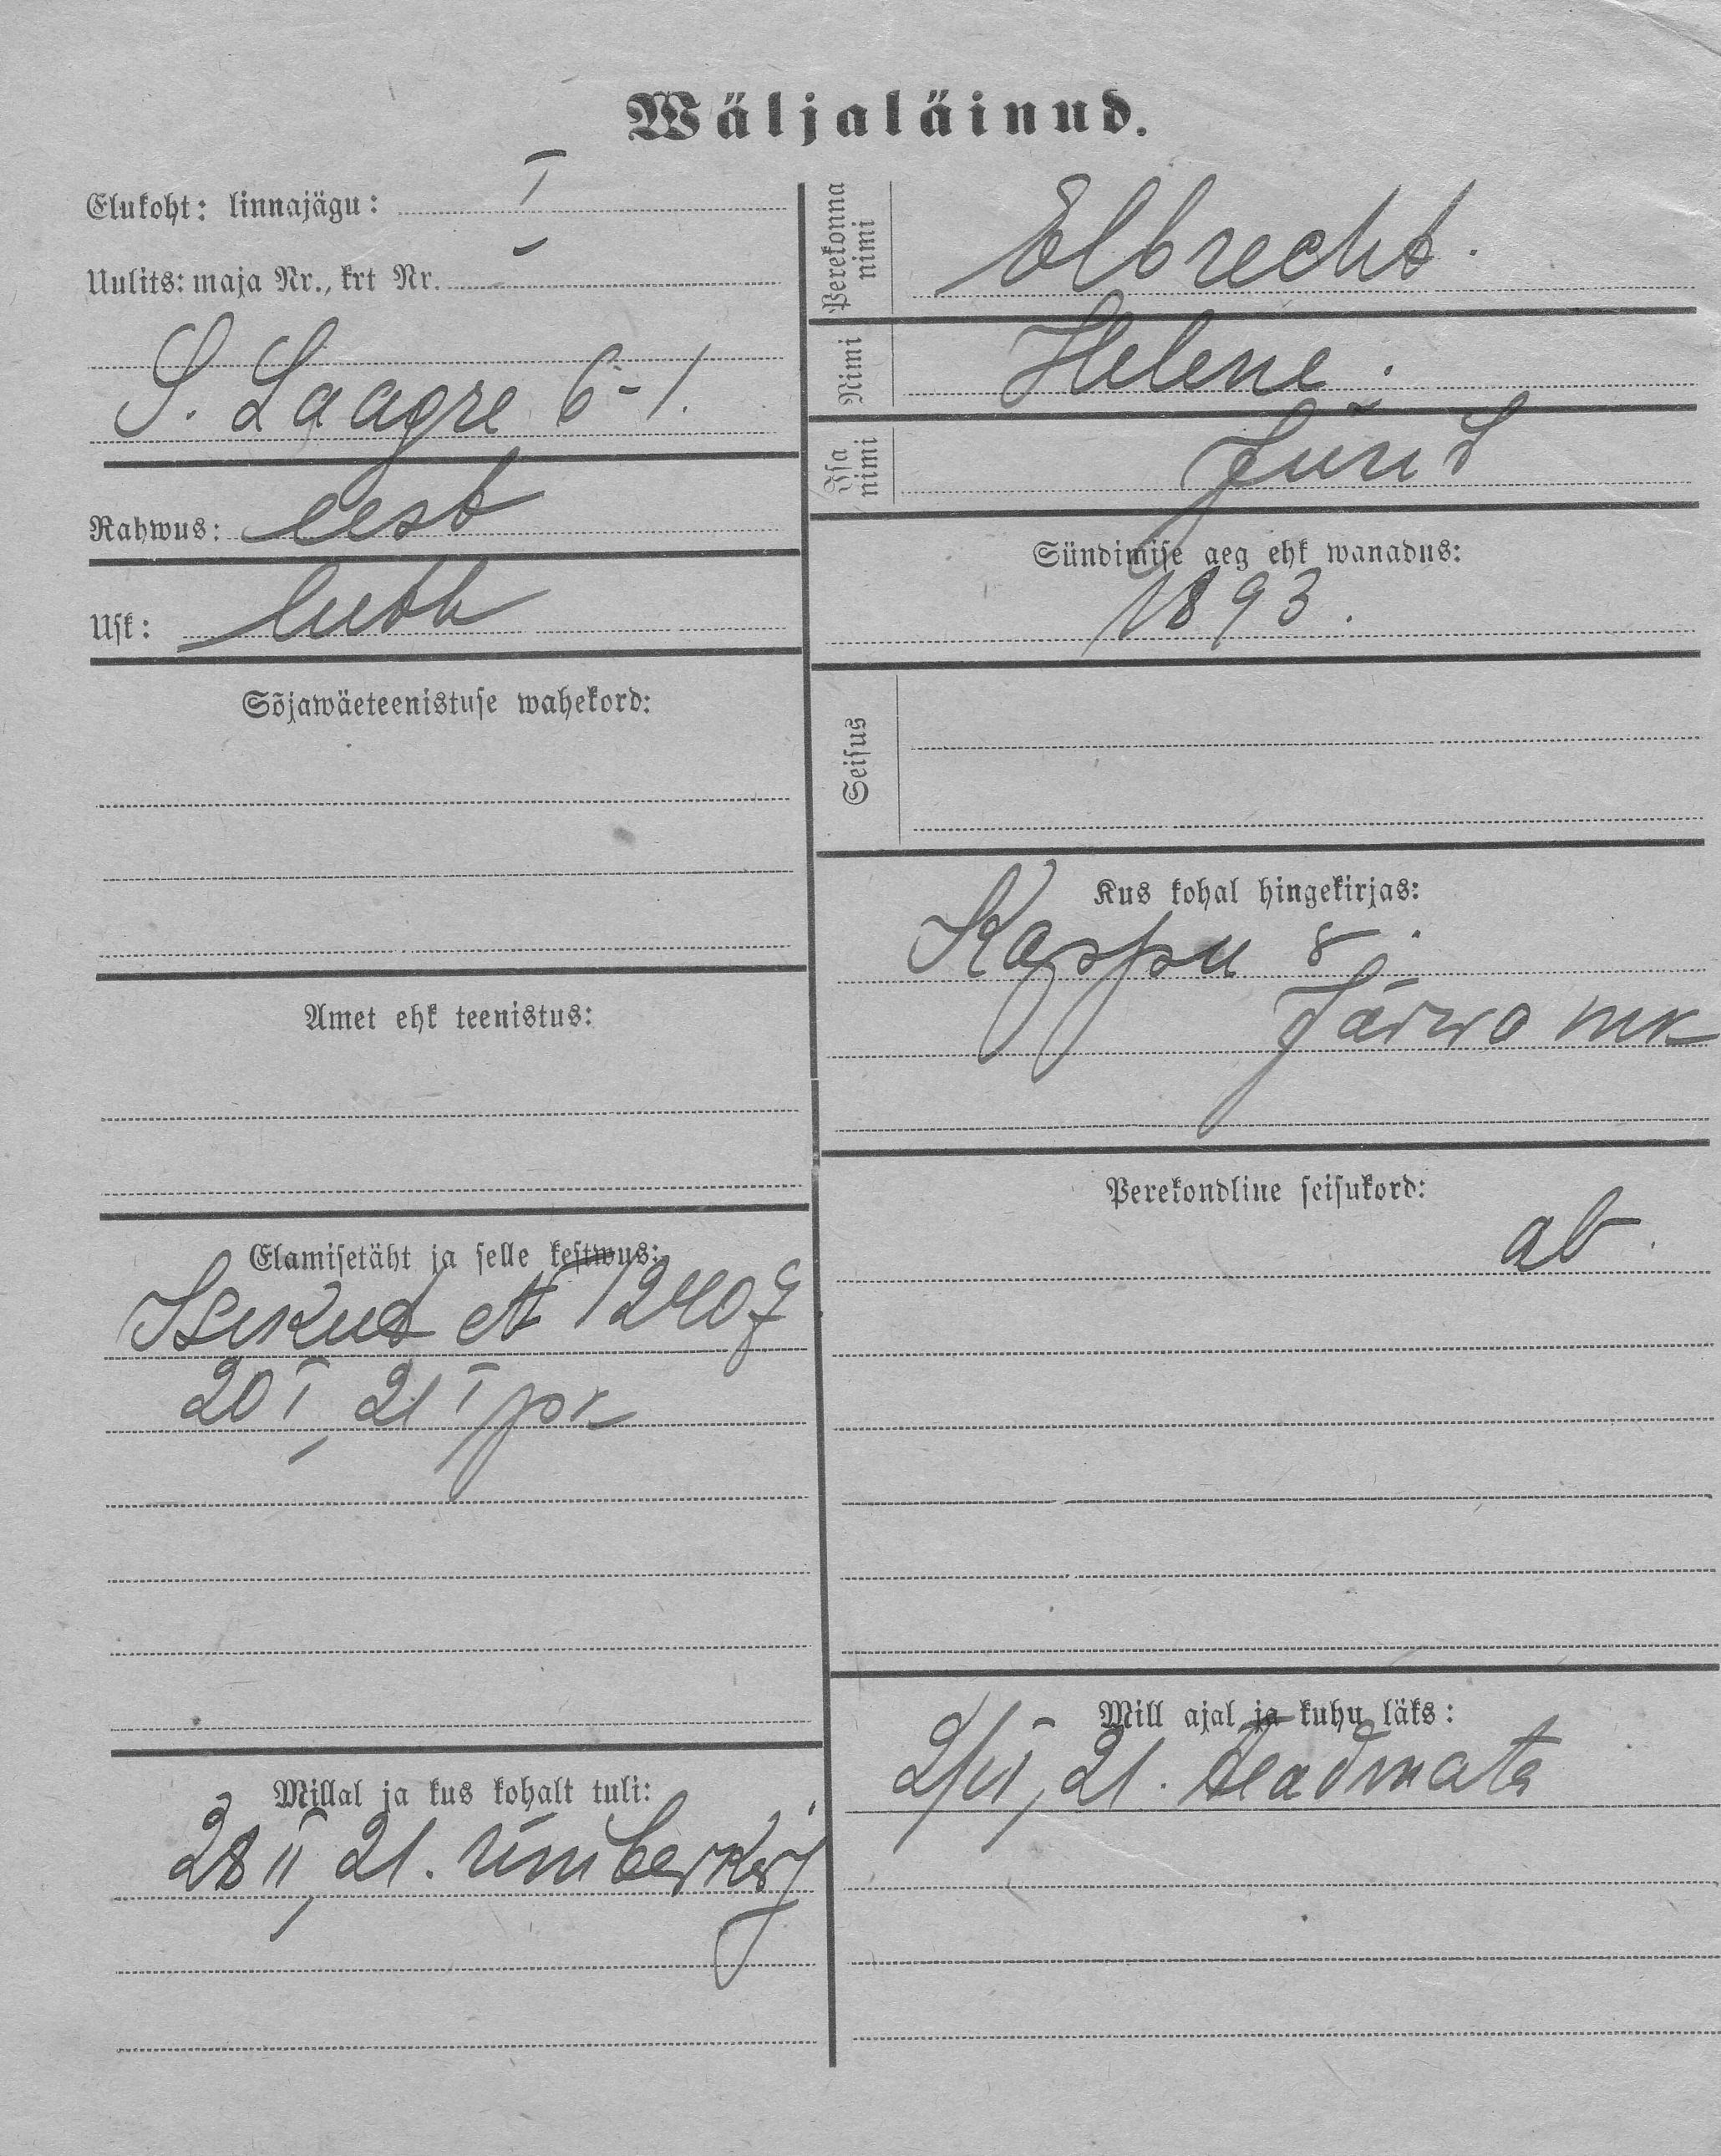 Wäljaläinud.
Elukoht: linnajägu: I
Uulits: maja Nr., krt Nr.
S. Laagre 6-1.
Rahwus: eest
Usk: luth
Sõjawäeteenistuse wahekord:
Amet ehk teenistus:
Elamisetäht ja selle kestwus:
Isikut № 12407
20 I, 21 I pk
Millal ja kus kohalt tuli:
28 II, 21. ümberkrj
Perekonna nimi
Elbrecht.
Nimi
Helene.
Isa nimi
Jüri t
Sündimise aeg ehk wanadus:
1893.
Seisus
Kus kohal hingekirjas:
Kappu
Järwa mk
Perekondline seisukord:
ab.
Mill ajal ja kuhu läks:
21. teadmata